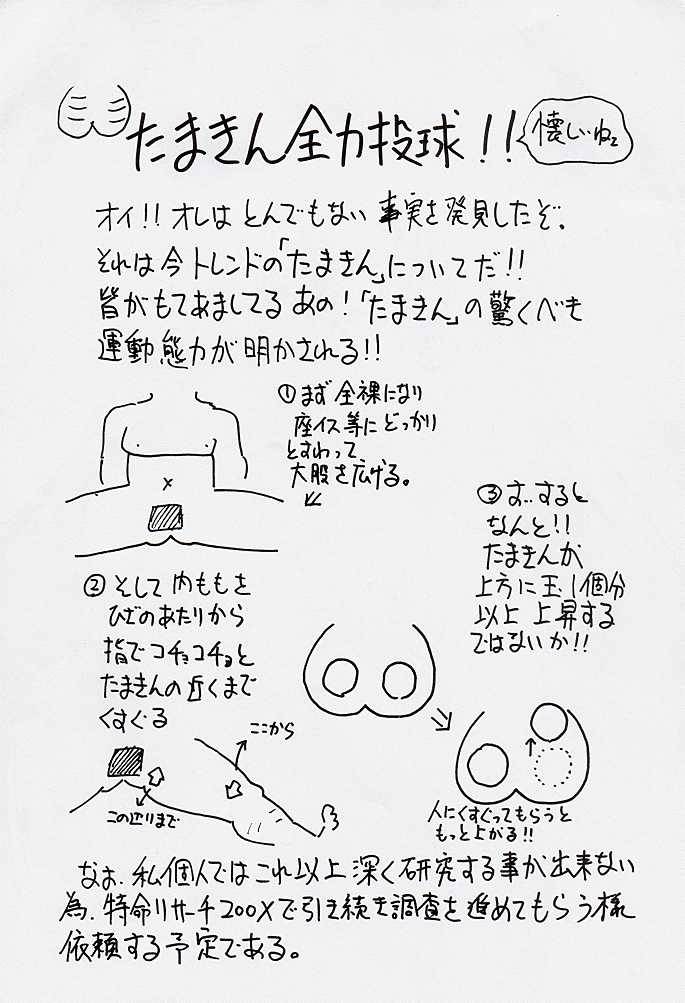 たまきん全力投球!!
懐しいねェ
オイ!! オレは とんでもない 事実を発見したぞ。
それは今トレンドの「たまきん」についてだ!!
皆がもてあましてる あの!「たまきん」の驚くべき
運動態力が明かされる!!
①まず全裸になり
座イス等にどっかり
とすわって
大股を広げる。
②そして内ももを
ひざのあたりから
指でコチョコチョと
たまきんの近くまで
くすぐる
ここから
この辺りまで
③す..すると
なんと!!
たまきんが
上方に玉1個分
以上 上昇する
ではないか!!
人にくすぐってもらうと
もっと上がる!!
なお、私個人ではこれ以上深く研究する事が出来ない
為、特命リサーチ200Xで引き続き調査を進めてもらう様
依頼する予定である。